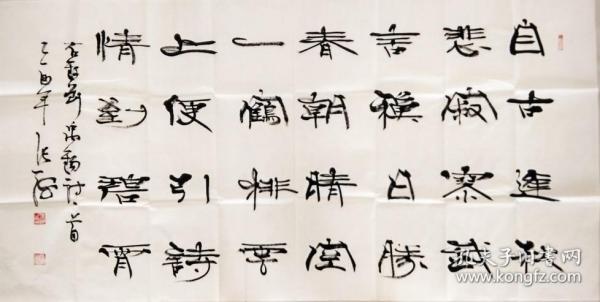 自古逢秋
悲寂寥我
言秋日勝
春朝晴空
一鶴排雲
上便引詩
情到碧霄
劉禹錫詩一首
酉年
孔夫子旧书网
www.kongfz.com